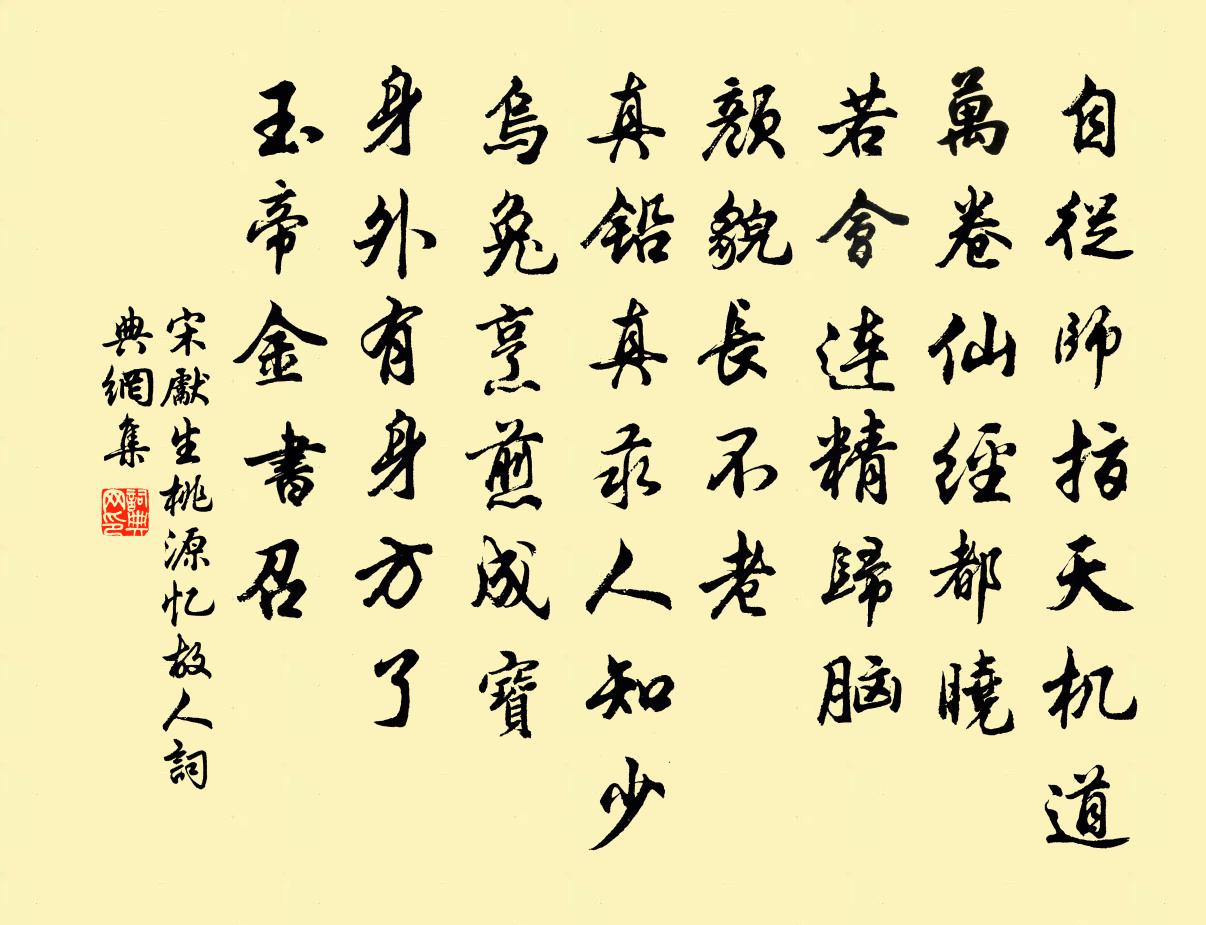 自從師指天机道
萬卷仙經都曉
若會連精歸脑
顏貌長不老
真鉛真汞人知少
烏兔烹煎成寶
身外有身方了
玉帝金書召
宋獻生桃源忆故人詞
典網集
詞典
网印